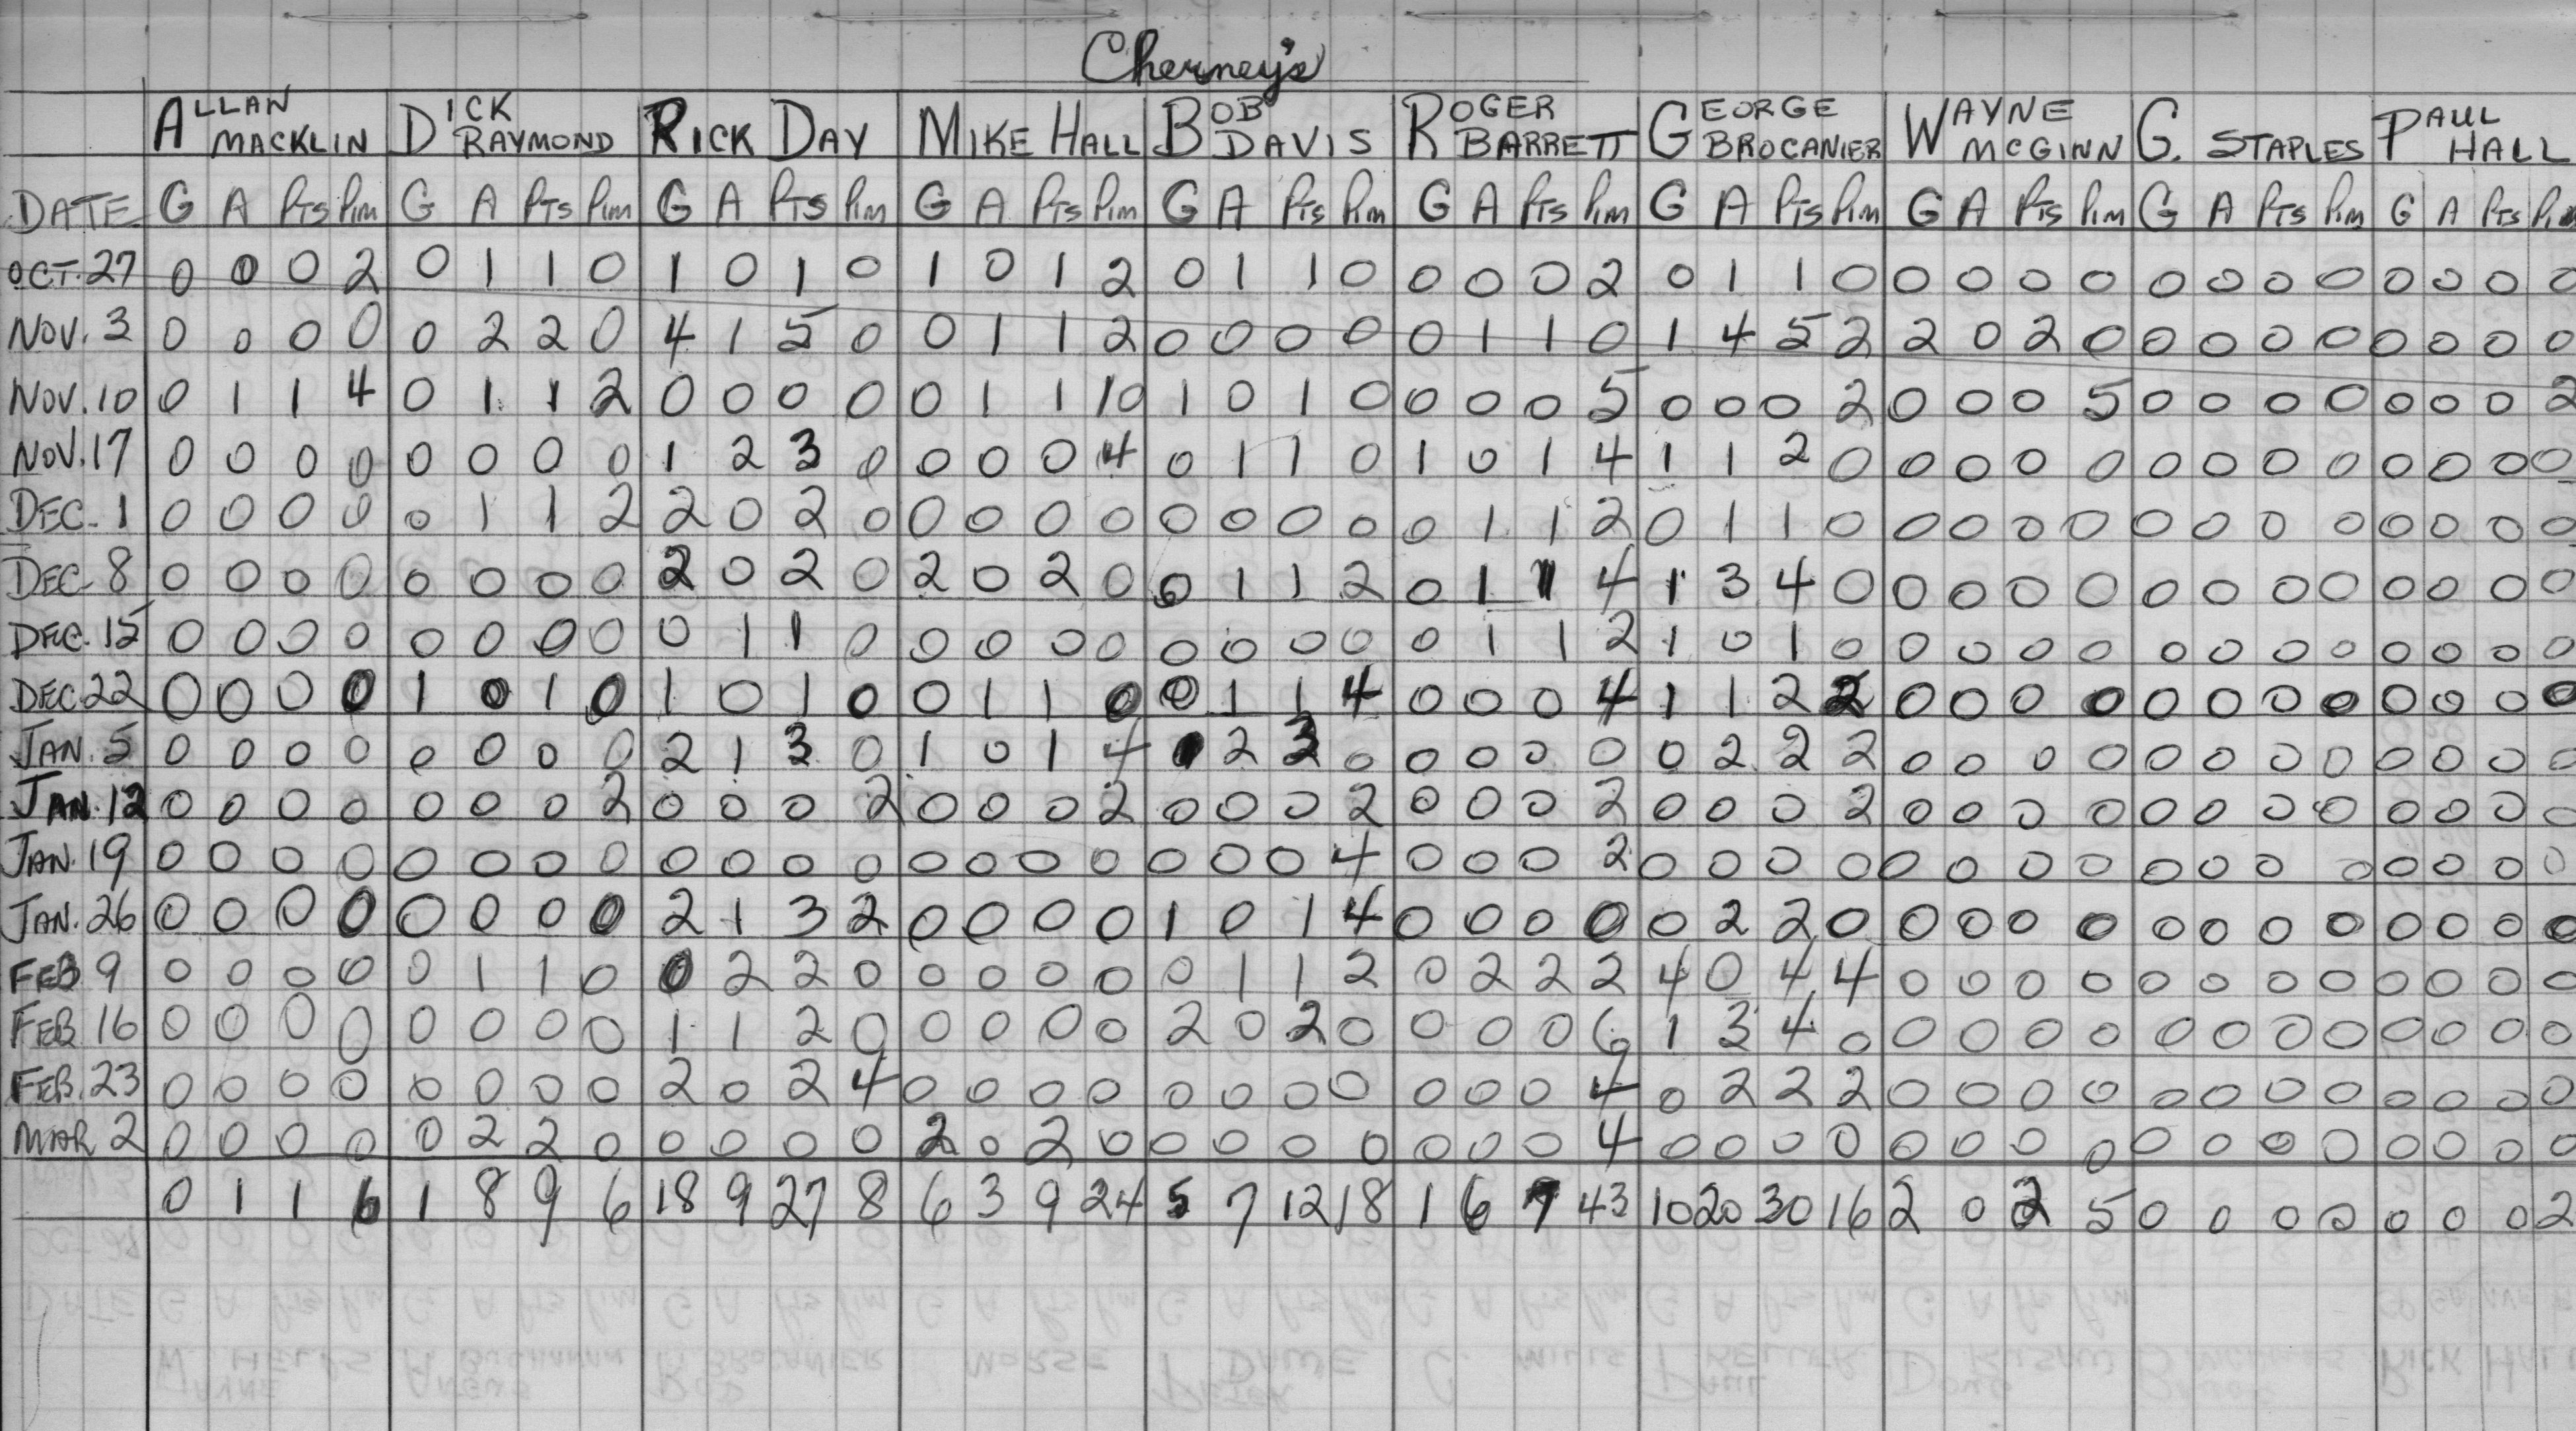 Cherney's
ALLAN MACKLIN DICK RAYMOND RICK DAY MIKE HALL BOB DAVIS ROGER BARRETT GEORGE BROCANIER WAYNE MCGINN G. STAPLES PAUL HALL
DATE G A Pts Pim G A Pts Pim G A Pts Pim G A Pts Pim G A Pts Pim G A Pts Pim G A Pts Pim G A Pts Pim G A Pts Pim G A Pts Pim
OCT. 27 0 0 0 2 0 1 1 0 1 0 1 0 1 0 1 2 0 1 1 0 0 0 0 2 0 1 1 0 0 0 0 0 0 0 0 0 0 0 0 0
NOV. 3 0 0 0 0 0 2 2 0 4 1 5 0 0 1 1 2 0 0 0 0 0 1 1 0 1 4 5 2 2 0 2 0 0 0 0 0 0 0 0 0
NOV. 10 0 1 1 4 0 1 1 2 0 0 0 0 0 1 1 10 1 0 1 0 0 0 0 5 0 0 0 2 0 0 0 5 0 0 0 0 0 0 0 2
NOV. 17 0 0 0 0 0 0 0 0 1 2 3 0 0 0 0 4 0 1 1 0 1 0 1 4 1 1 2 0 0 0 0 0 0 0 0 0 0 0 0 0
DEC. 1 0 0 0 0 0 1 1 2 2 0 2 0 0 0 0 0 0 0 0 0 0 1 1 2 0 1 1 0 0 0 0 0 0 0 0 0 0 0 0 0
DEC. 8 0 0 0 0 0 0 0 0 2 0 2 0 2 0 2 0 0 1 1 2 0 1 1 4 1 3 4 0 0 0 0 0 0 0 0 0 0 0 0 0
DEC. 15 0 0 0 0 0 0 0 0 0 1 1 0 0 0 0 0 0 0 0 0 0 1 1 2 1 0 1 0 0 0 0 0 0 0 0 0 0 0 0 0
DEC 22 0 0 0 0 1 0 1 0 1 0 1 0 0 1 1 0 0 1 1 4 0 0 0 4 1 1 2 2 0 0 0 0 0 0 0 0 0 0 0 0
JAN. 5 0 0 0 0 0 0 0 0 2 1 3 0 1 0 1 4 1 2 3 0 0 0 0 0 0 2 2 2 0 0 0 0 0 0 0 0 0 0 0 0
JAN. 12 0 0 0 0 0 0 0 2 0 0 0 2 0 0 0 2 0 0 0 2 0 0 0 2 0 0 0 2 0 0 0 0 0 0 0 0 0 0 0 0
JAN. 19 0 0 0 0 0 0 0 0 0 0 0 0 0 0 0 0 0 0 0 4 0 0 0 2 0 0 0 0 0 0 0 0 0 0 0 0 0 0 0 0
JAN. 26 0 0 0 0 0 0 0 0 2 1 3 2 0 0 0 0 1 0 1 4 0 0 0 0 0 2 2 0 0 0 0 0 0 0 0 0 0 0 0 0
FEB 9 0 0 0 0 0 1 1 0 0 2 2 0 0 0 0 0 0 1 1 2 0 2 2 2 4 0 4 4 0 0 0 0 0 0 0 0 0 0 0 0
FEB 16 0 0 0 0 0 0 0 0 1 1 2 0 0 0 0 0 2 0 2 0 0 0 0 6 1 3 4 0 0 0 0 0 0 0 0 0 0 0 0 0
FEB. 23 0 0 0 0 0 0 0 0 2 0 2 4 0 0 0 0 0 0 0 0 0 0 0 4 0 2 2 2 0 0 0 0 0 0 0 0 0 0 0 0
MAR 2 0 0 0 0 0 2 2 0 0 0 0 0 2 0 2 0 0 0 0 0 0 0 0 4 0 0 0 0 0 0 0 0 0 0 0 0 0 0 0 0
0 1 1 6 1 8 9 6 18 9 27 8 6 3 9 24 5 7 12 18 1 6 7 43 10 20 30 16 2 0 2 5 0 0 0 0 0 0 0 2